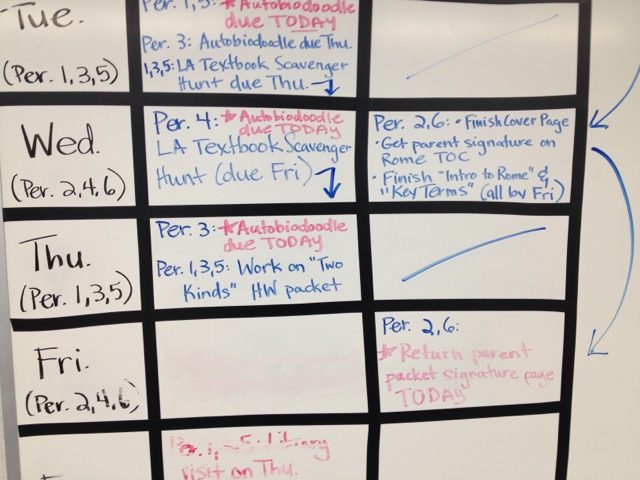 Tue.
(Per. 1,3,5)
Per. 1,5: *Autobiodoodle
due TODAY
Per. 3: Autobiodoodle due Thu.
1,3,5: LA Textbook Scavenger
Hunt due Thu.
Wed.
(Per. 2,4,6)
Per. 4: *Autobiodoodle
due TODAY
LA Textbook Scavenger
Hunt (due Fri)
Per. 2,6: • Finish Cover Page
• Get parent signature on
Rome TOC
• Finish "Intro to Rome" &
"Key Terms" (all by Fri)
Thu.
(Per. 1,3,5)
Per. 3: *Autobiodoodle
due TODAY
Per. 1,3,5: Work on "Two
Kinds" HW packet
Fri.
(Per. 2,4,6)
Per. 2,6:
*Return parent
packet signature page
TODAY
visit on Thu.